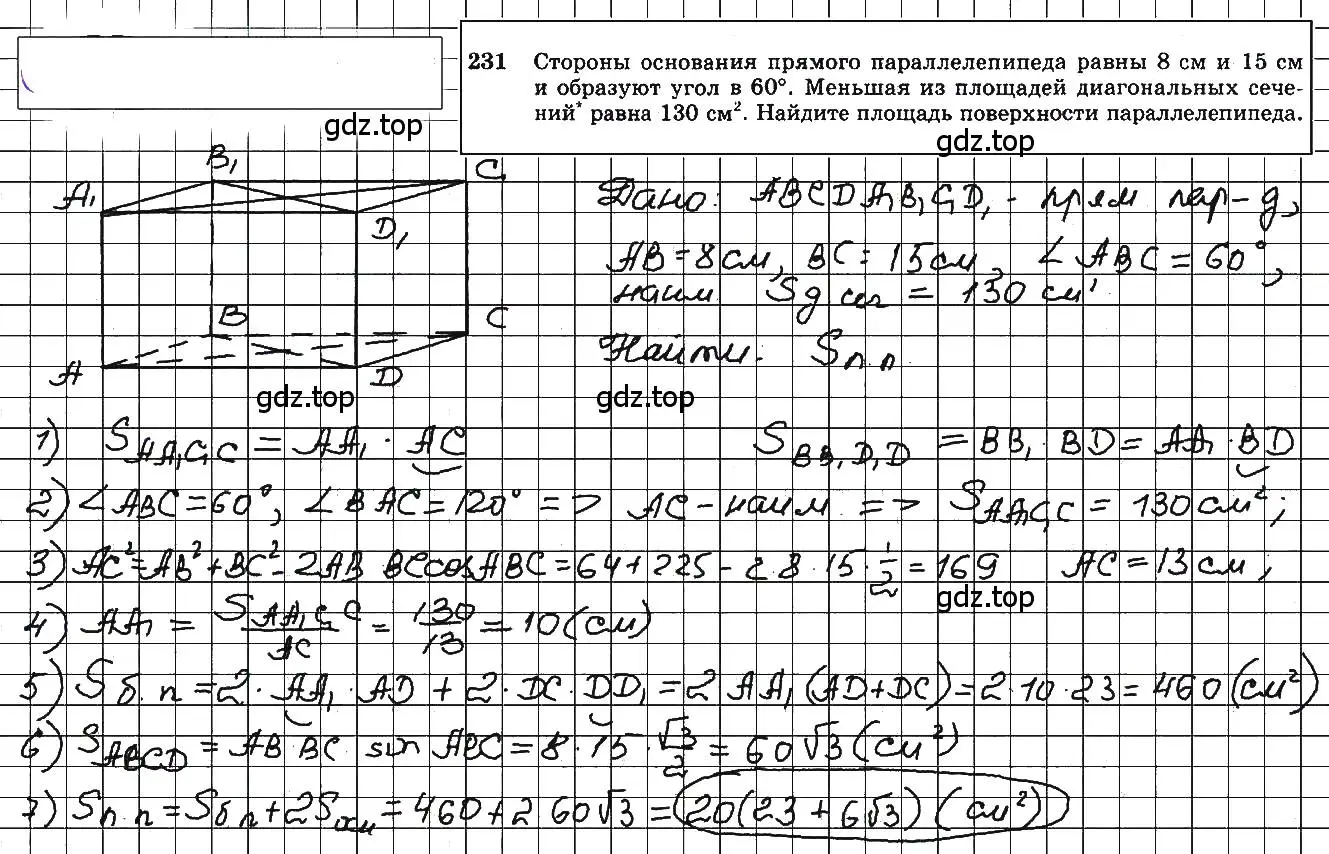 231 Стороны основания прямого параллелепипеда равны 8 см и 15 см
и образуют угол в 60°. Меньшая из площадей диагональных сече-
ний* равна 130 см². Найдите площадь поверхности параллелепипеда.
gdz.top
gdz.top
B₁
C₁
A₁
D₁
B
C
A
D
Дано: ABCDA₁B₁C₁D₁ - прям пар-д,
AB = 8 см, BC = 15 см, ∠ABC = 60°,
наим S д сеч = 130 см²
Найти: Sп.п
gdz.top
gdz.top
1) S AA₁C₁C = AA₁ · AC S BB₁D₁D = BB₁ · BD = AA₁ · BD
2) ∠ABC = 60°, ∠BAC = 120° => AC - наим => S AA₁C₁C = 130 см²;
3) AC² = AB² + BC² - 2AB BC cos ABC = 64 + 225 - 2 8 · 15 · 1/2 = 169 AC = 13 см;
gdz.top
4) AA₁ = S AA₁C₁C / AC = 130/13 = 10 (см)
5) S б.п = 2 · AA₁ · AD + 2 · DC · DD₁ = 2 AA₁ (AD + DC) = 2 · 10 · 23 = 460 (см²)
6) S ABCD = AB BC sin ABC = 8 · 15 · √3/2 = 60√3 (см²)
7) Sп.п = Sб.п + 2Sосн = 460 + 2 60√3 = 20(23 + 6√3) (см²)